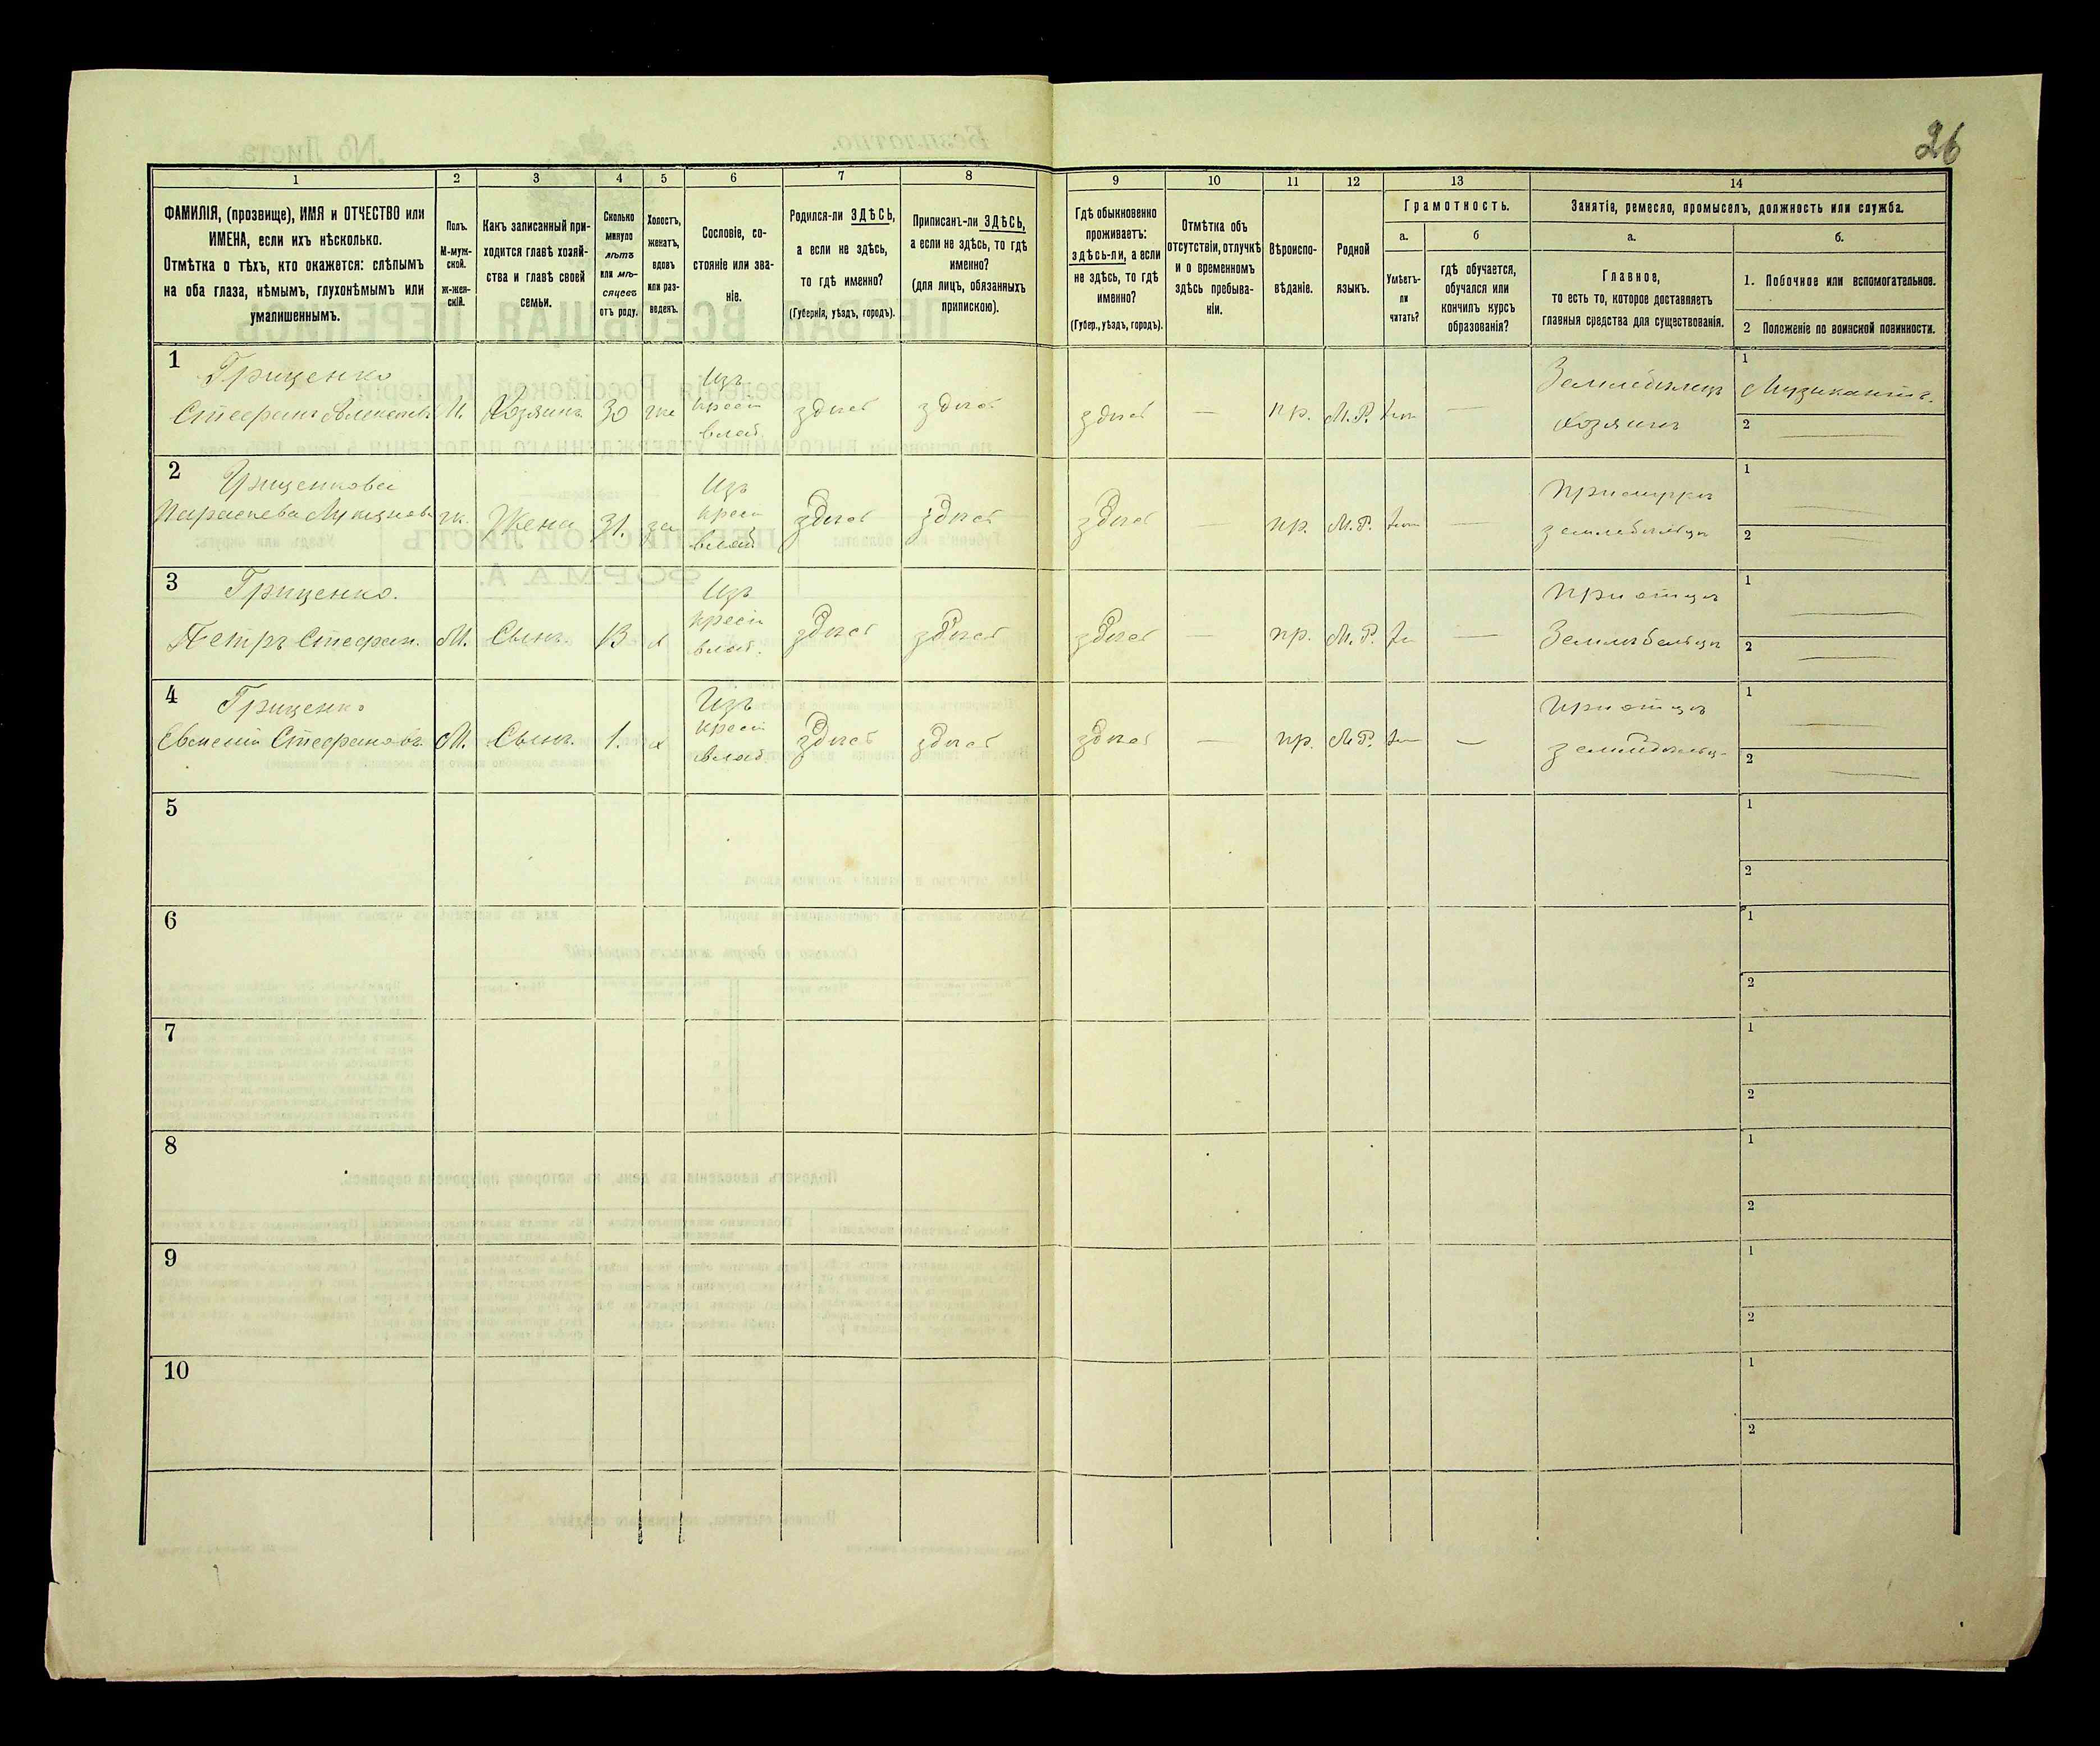 26
1
2
3
4
5
6
7
8
9
10
11
12
13
14
ФАМИЛІЯ, (прозвище), ИМЯ и ОТЧЕСТВО или
ИМЕНА, если ихъ нѣсколько.
Отмѣтка о тѣхъ, кто окажется: слѣпымъ
на оба глаза, нѣмымъ, глухонѣмымъ или
умалишеннымъ.
Полъ.
М-муж-
ской.
ж-жен-
скій.
Какъ записанный при-
ходится главѣ хозяй-
ства и главѣ своей
семьи.
Сколько
минуло
лѣтъ
или мѣ-
сяцевъ
отъ роду.
Холостъ,
женатъ,
вдовъ
или раз-
веденъ.
Сословіе, со-
стояніе или зва-
ніе.
Родился-ли ЗДѢСЬ,
а если не здѣсь,
то гдѣ именно?
(Губернія, уѣздъ, городъ).
Приписанъ-ли ЗДѢСЬ,
а если не здѣсь, то гдѣ
именно?
(для лицъ, обязанныхъ
припискою).
Гдѣ обыкновенно
проживаетъ:
здѣсь-ли, а если
не здѣсь, то гдѣ
именно?
(Губер., уѣздъ, городъ).
Отмѣтка объ
отсутствіи, отлучкѣ
и о временномъ
здѣсь пребыва-
ніи.
Вѣроиспо-
вѣданіе.
Родной
языкъ.
Грамотность.
а.
Умѣетъ-
ли
читать?
б
гдѣ обучается,
обучался или
кончилъ курсъ
образованія?
Занятія, ремесло, промыселъ, должность или служба.
а.
Главное,
то есть то, которое доставляетъ
главныя средства для существованія.
б.
1. Побочное или вспомогательное.
2 Положеніе по воинской повинности.
1
Грищенко
Стефанъ М. Хозяинъ 30 же Изъ
крест
влад. здѣсь здѣсь здѣсь — пр. М. Р. —
Земледѣлецъ
хозяинъ
1 Музыкантъ.
2 —
2
Грищенкова
Параскева ж. Жена 31. за Изъ
крест
влад. здѣсь здѣсь здѣсь пр. М. Р. —
При мужѣ
земледѣльцѣ
1 —
2 —
3
Грищенко.
Петръ Стефан. М. Сынъ. 13 х Изъ
крест
влад. здѣсь здѣсь здѣсь — пр. М. Р. —
При отцѣ
Земледѣльцѣ
1 —
2 —
4
Грищенко
Евгеній Стефановъ. М. Сынъ. 1. х Изъ
крест
влад. здѣсь здѣсь здѣсь — пр. М. Р. —
При отцѣ
земледѣльц.
1 —
2 —
5
1
2
6
1
2
7
1
2
8
1
2
9
1
2
10
1
2